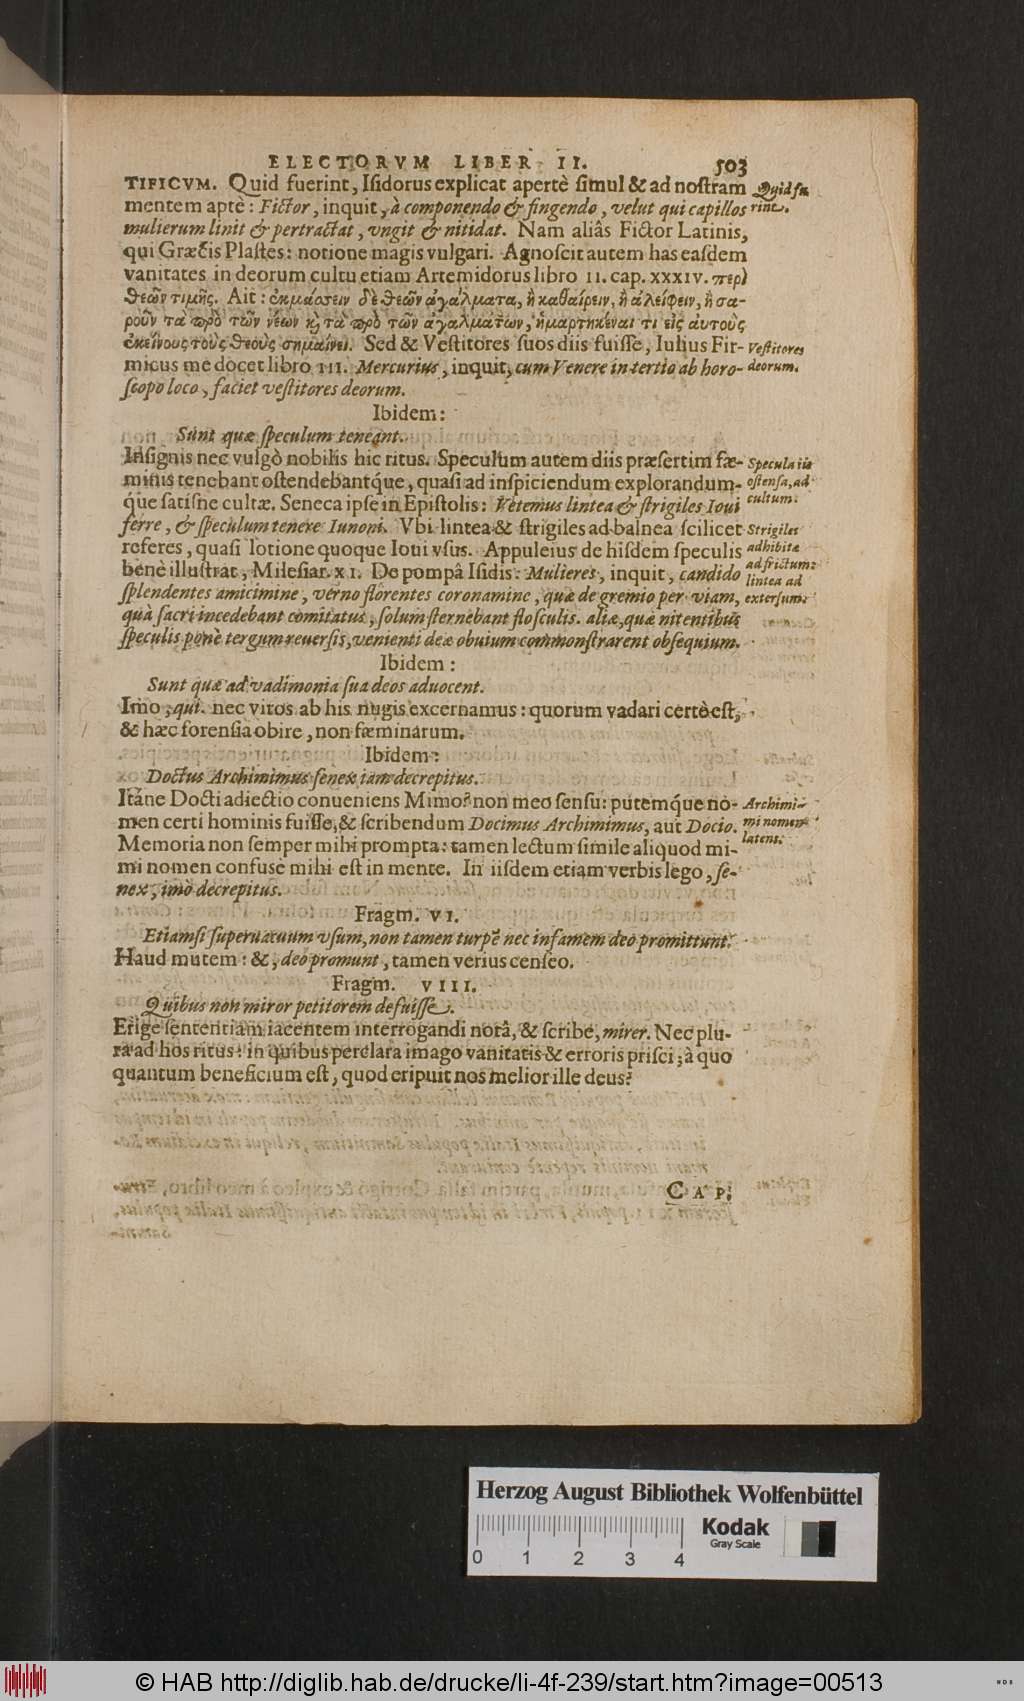 ELECTORVM LIBER II. 503
TIFICVM. Quid fuerint, Iſidorus explicat apertè ſimul & ad noſtram
mentem aptè: Fictor, inquit, à componendo & fingendo, velut qui capillos
mulierum linit & pertractat, vngit & nitidat. Nam aliâs Fictor Latinis,
qui Græcis Plaſtes: notione magis vulgari. Agnoſcit autem has eaſdem
vanitates in deorum cultu etiam Artemidorus libro II. cap. XXXIV. περὶ
θεῶν τιμῆς. Ait: ἐκμάσσειν δὲ θεῶν ἀγάλματα, ἢ καθαίρειν, ἢ ἀλείφειν, ἢ σα-
ροῦν τὰ πρὸ τῶν νέων κὶ τὰ πρὸ τῶν ἀγαλμάτων, ἡμαρτηκέναι τι εἰς αὐτοὺς
ἐκείνους τοὺς θεοὺς σημαίνει. Sed & Veſtitores ſuos diis fuiſſe, Iulius Fir-
micus me docet libro III. Mercurius, inquit, cum Venere in tertio ab horo-
ſcopo loco, faciet veſtitores deorum.
Ibidem:
Sunt quæ ſpeculum teneant.
Inſignis nec vulgò nobilis hic ritus. Speculum autem diis præſertim fæ-
minis tenebant oſtendebantq́ue, quaſi ad inſpiciendum explorandum-
q́ue ſatiſne cultæ. Seneca ipſe in Epiſtolis: Vetemus lintea & ſtrigiles Ioui
ferre, & ſpeculum tenere Iunoni. Vbi lintea & ſtrigiles ad balnea ſcilicet
referes, quaſi lotione quoque Ioui vſus. Appuleius de hiſdem ſpeculis
benè illuſtrat, Mileſiar. XI. De pompâ Iſidis: Mulieres, inquit, candido
ſplendentes amicimine, verno florentes coronamine, quæ de gremio per viam,
quà ſacri incedebant comitatus, ſolum ſternebant floſculis. aliæ, quæ nitentibus
ſpeculis ponè tergum reuerſis, venienti deæ obuium commonſtrarent obſequium.
Ibidem:
Sunt quæ ad vadimonia ſua deos aduocent.
Imo, qui. nec viros ab his nugis excernamus: quorum vadari certè eſt,
& hæc forenſia obire, non fæminarum.
Ibidem:
Doctus Archimimus ſenex iam decrepitus.
Itáne Docti adiectio conueniens Mimo? non meo ſenſu: putemq́ue no-
men certi hominis fuiſſe, & ſcribendum Docimus Archimimus, aut Docio.
Memoria non ſemper mihi prompta: tamen lectum ſimile aliquod mi-
mi nomen confuse mihi eſt in mente. In iiſdem etiam verbis lego, ſe-
nex, imò decrepitus.
Fragm. VI.
Etiamſi ſuperuacuum vſum, non tamen turpē nec infamem deo promittunt.
Haud mutem: &, deo promunt, tamen verius cenſeo.
Fragm. VIII.
Quibus non miror petitorem defuiſſe.
Erige ſententiam iacentem interrogandi notâ, & ſcribe, mirer. Nec plu-
ra ad hos ritus: in quibus perclara imago vanitatis & erroris priſci; à quo
quantum beneficium eſt, quod eripuit nos melior ille deus?
CAP.
Quid fu
rint.
Veſtitores
deorum.
Specula iis
oſtenſa, ad
cultum.
Strigiles
adhibitæ
ad frictum:
lintea ad
exterſum.
Archimi-
mi nomen
latens.
Herzog August Bibliothek Wolfenbüttel
Kodak
Gray Scale
0 1 2 3 4
© HAB http://diglib.hab.de/drucke/li-4f-239/start.htm?image=00513